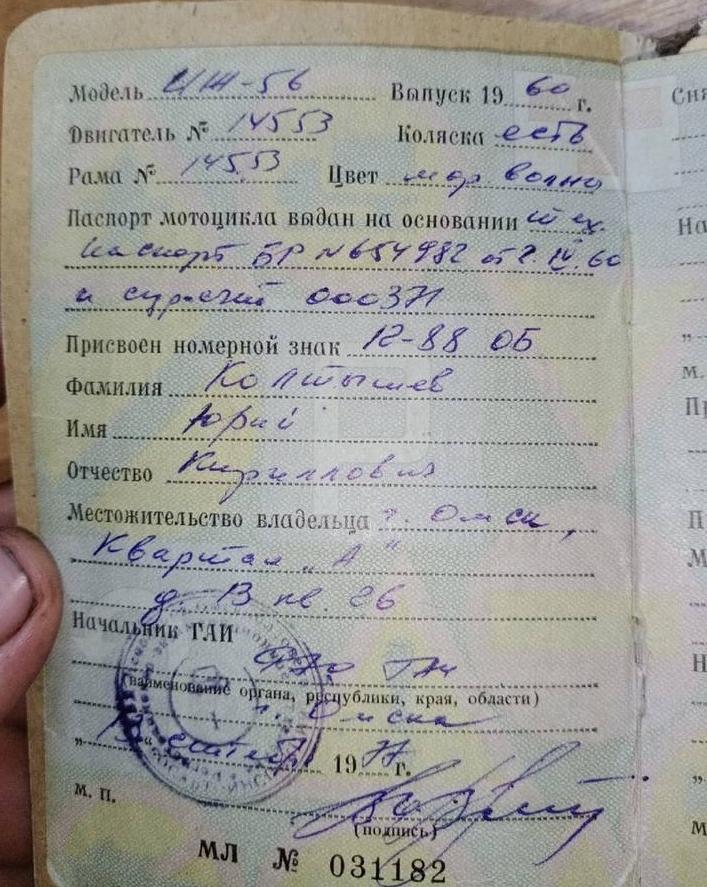 Модель ИЖ-56 Выпуск 1960 г.
Двигатель № 14553 Коляска есть
Рама № 14553 Цвет мор волна
Паспорт мотоцикла выдан на основании тех.
паспорт БР N 654982 от 2.IV.60
и 000371
Присвоен номерной знак 12-88 ОБ
Фамилия Колтышев
Имя Юрий
Отчество Кириллович
Местожительство владельца г. Омск,
Квартал „А"
д. 13 кв. 26
Начальник ГАИ
ГАИ
(наименование органа, республики, края, области)
г. Омска
1977 г.
м. п.
(подпись)
МЛ № 031182